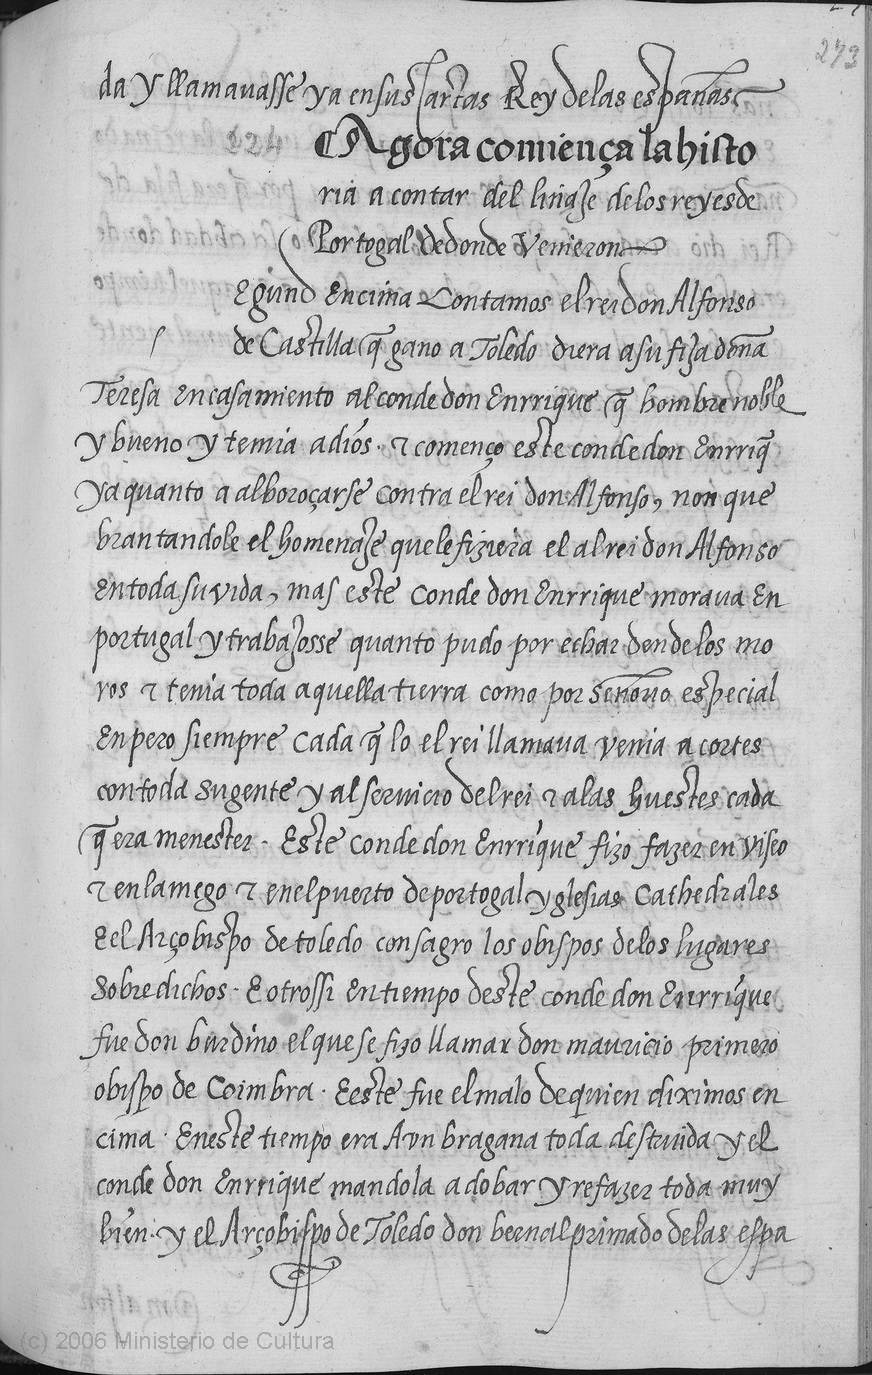 273
da y llamauasse ya en sus cartas Rey de las españas
224
Agora comiença la histo
ria a contar del linaje de los reyes de
Portogal dedonde Venieron
Egund encima Contamos el rei don Alfonso
de Castilla q̃ gano a Toledo diera a su fija doña
Teresa en casamiento al conde don Enrrique q̃ hombre noble
y bueno y temia a dios. τ començo este conde don Enrriq̃
ya quanto a alboroçarse contra el rei don Alfonso, non que
brantandole el homenaje que le fiziera el al rei don Alfonso
en toda su vida, mas este conde don Enrrique moraua en
portugal y trabajosse quanto pudo por echar dende los mo
ros τ tenia toda aquella tierra como por señorio especial
Enpero siempre cada q̃ lo el rei llamaua venia a cortes
con toda su gente y al seruicio del rei τ a las huestes cada
q̃ era menester. Este conde don Enrrique fizo fazer en viseo
τ en lamego τ en el puerto de portogal yglesias Cathedrales
E el Arçobispo de toledo consagro los obispos de los lugares
sobre dichos. E otrossi en tiempo deste conde don Enrrique
fue don burdino el que se fizo llamar don mauricio primero
obispo de Coimbra. E este fue el malo de quien diximos en
cima. En este tiempo era Avn bragana toda destruida y el
conde don Enrrique mandola adobar y refazer toda muy
bien. y el Arçobispo de Toledo don bernal primado de las espa
(c) 2006 Ministerio de Cultura